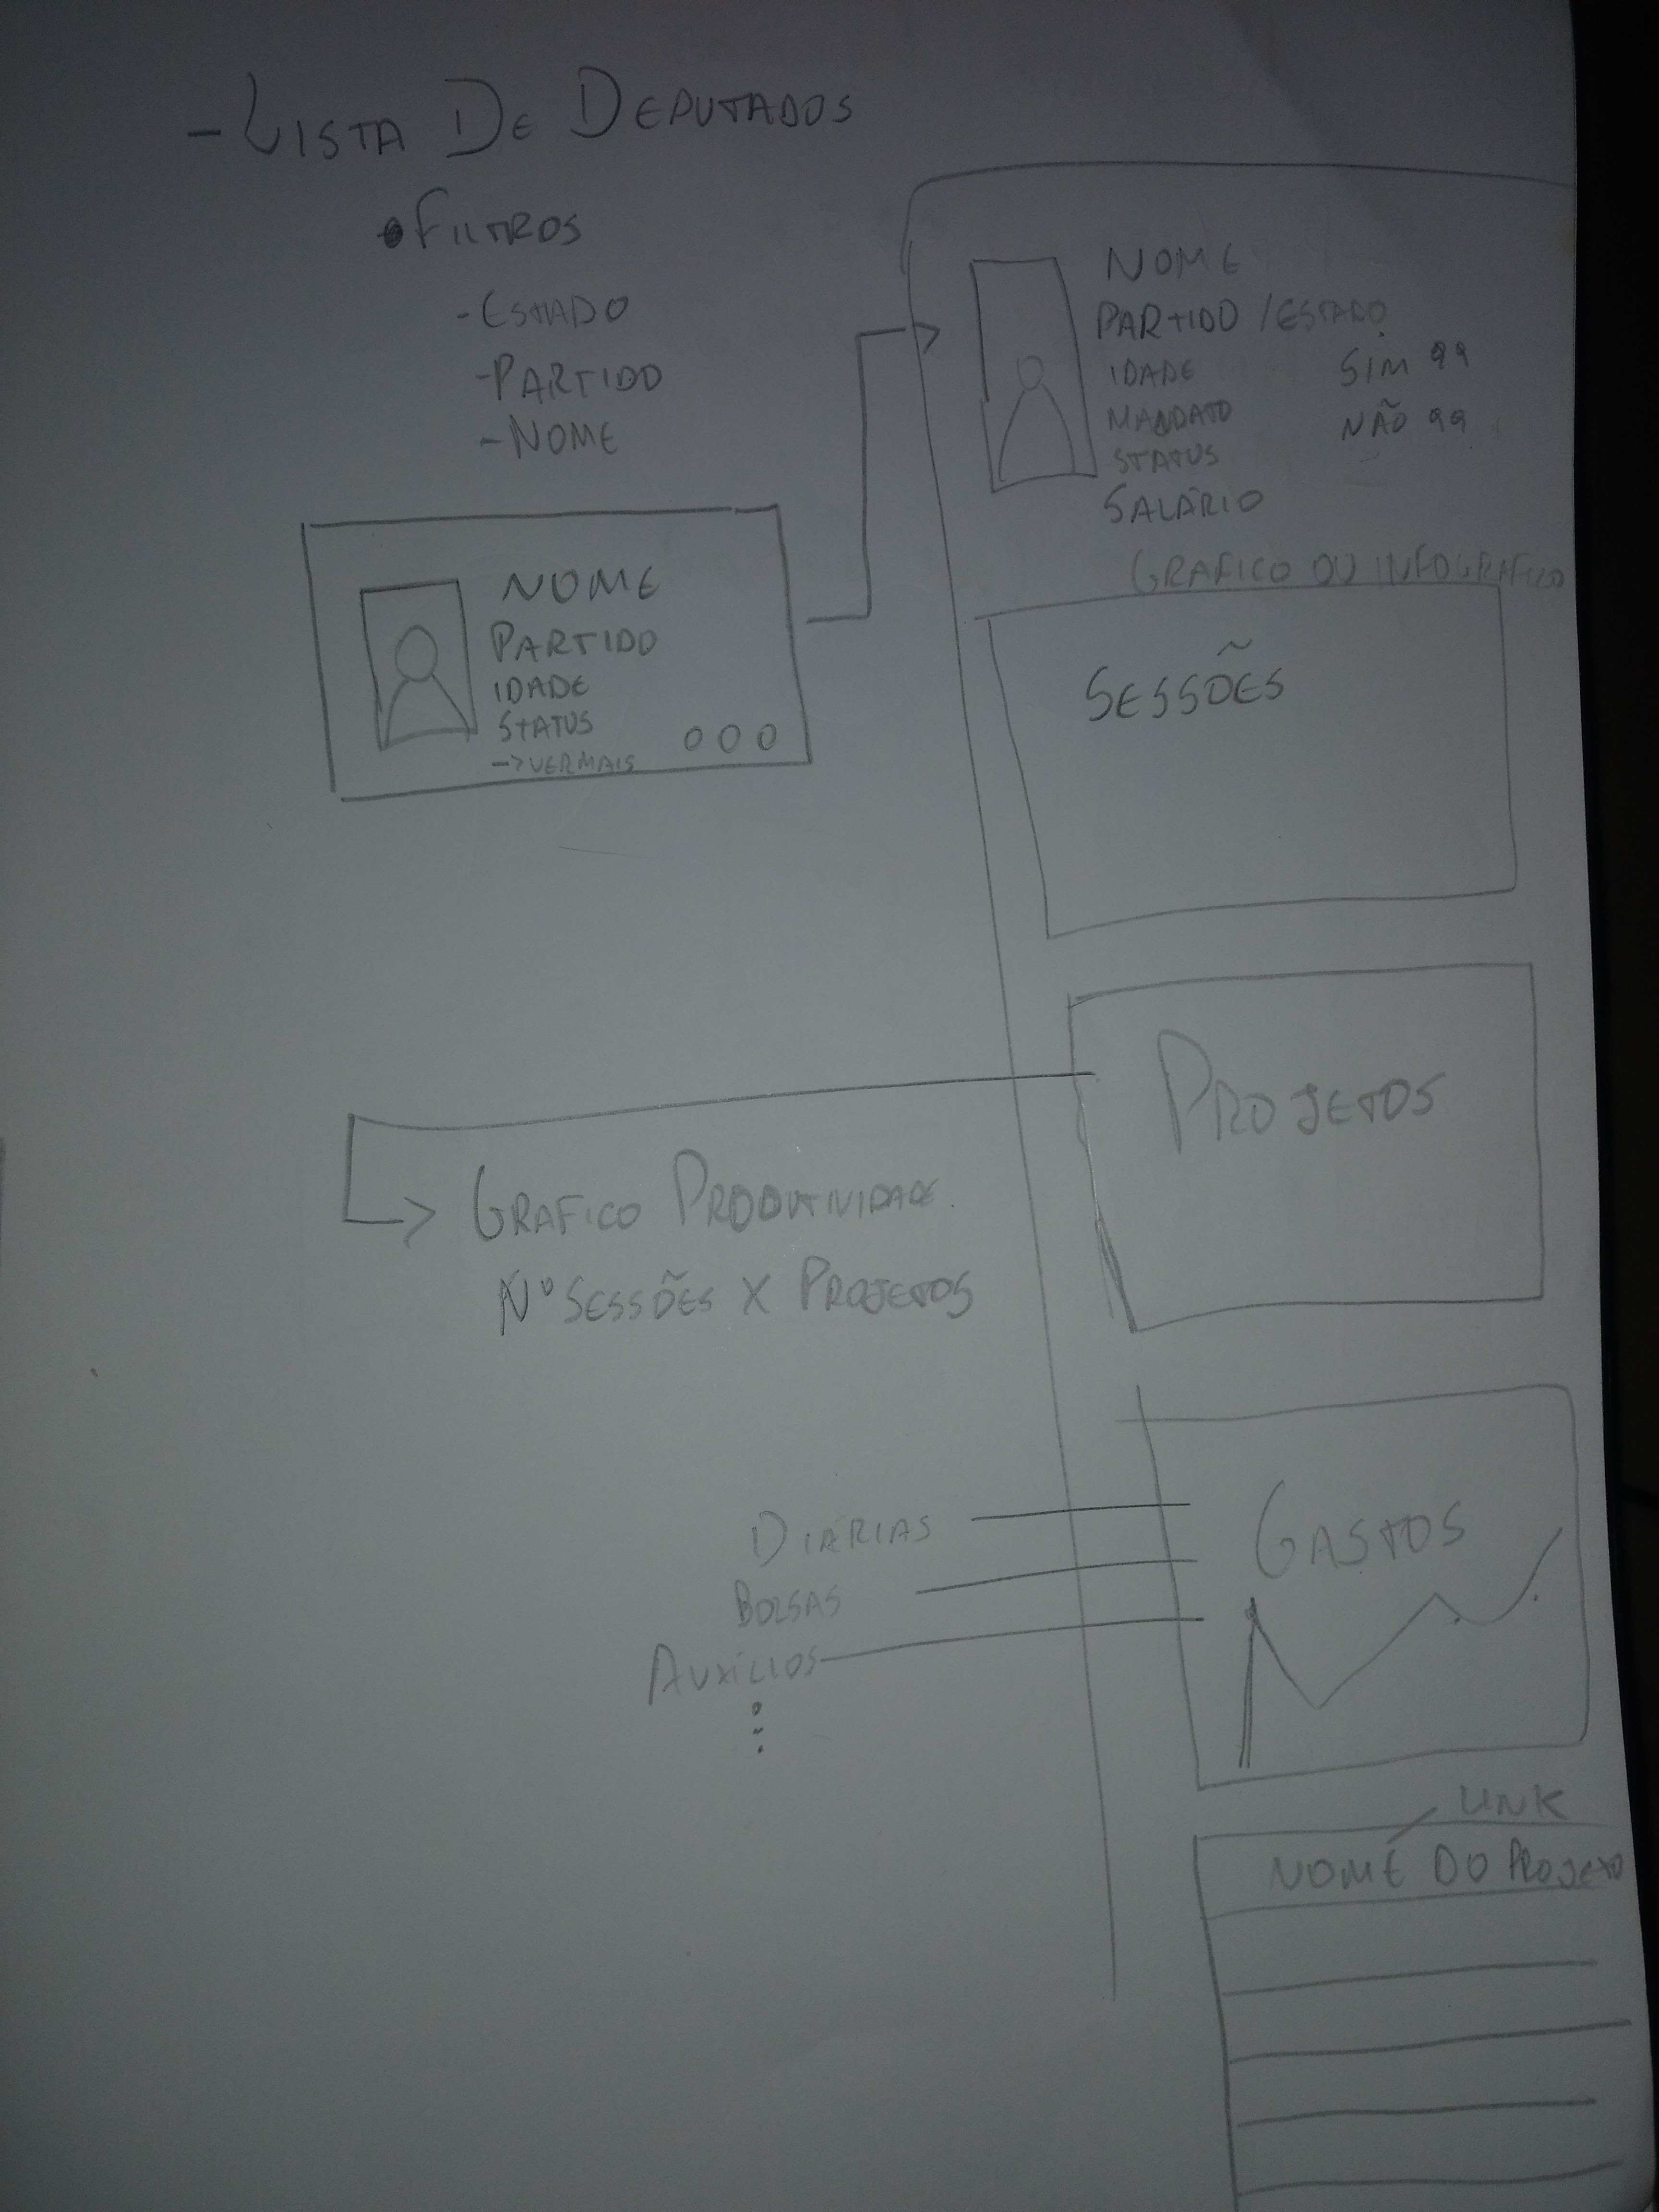 - LISTA DE DEPUTADOS
• FILTROS
- ESTADO
- PARTIDO
- NOME
NOME
PARTIDO
IDADE
STATUS
-> VER MAIS
NOME
PARTIDO / ESTADO
IDADE
SIM 99
MANDATO
NÃO 99
STATUS
SALÁRIO
GRAFICO OU INFOGRAFICO
SESSÕES
PROJETOS
GRAFICO PRODUTIVIDADE
Nº SESSÕES X PROJETOS
GASTOS
DIÁRIAS
BOLSAS
AUXÍLIOS
LINK
NOME DO PROJETO